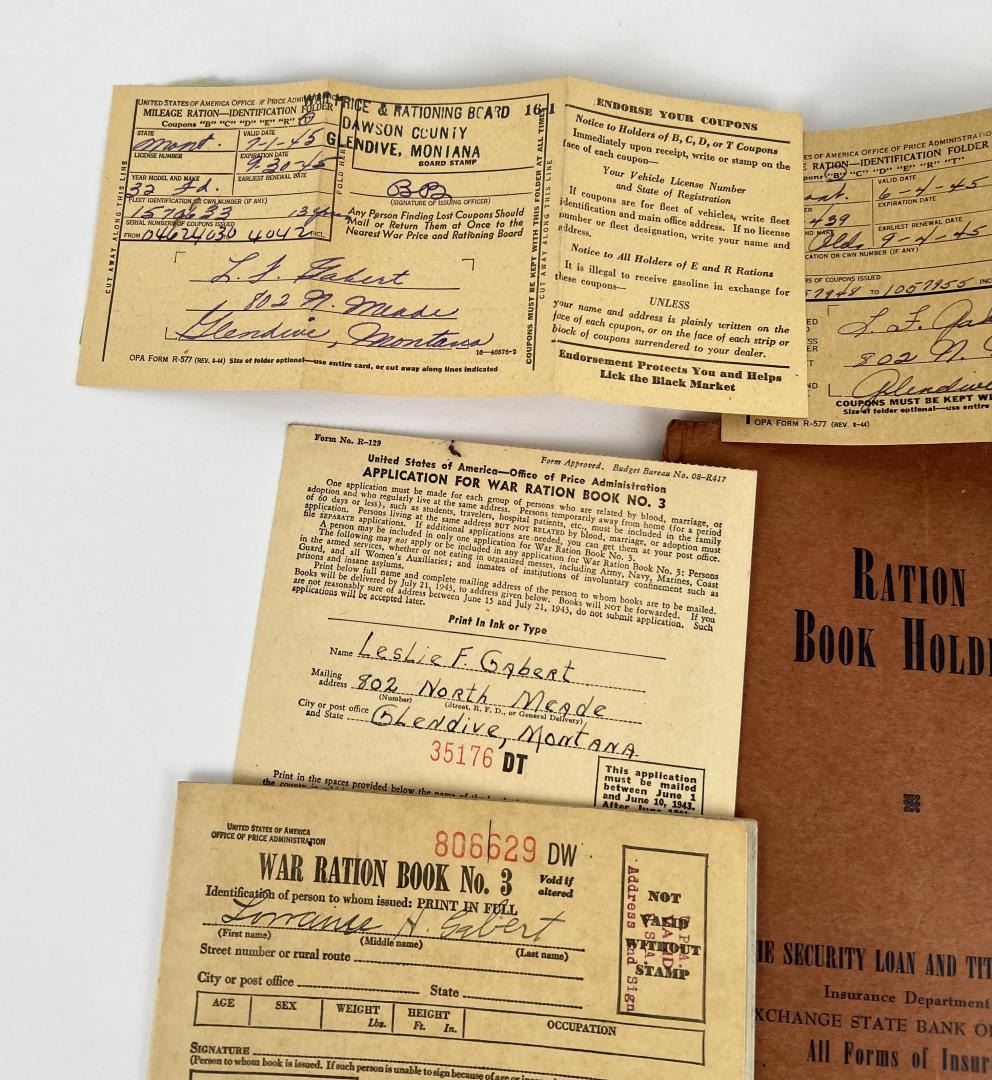 UNITED STATES OF AMERICA OFFICE OF PRICE ADMINISTRATION
MILEAGE RATION—IDENTIFICATION FOLDER
Coupons "B" "C" "D" "E" "R"
STATE
Mont.
VALID DATE
7-1-45
LICENSE NUMBER
EXPIRATION DATE
9-30-45
YEAR MODEL AND MAKE
32 Fd.
EARLIEST RENEWAL DATE
FLEET IDENTIFICATION OR CWN NUMBER (IF ANY)
SERIAL NUMBERS OF COUPONS ISSUED
FROM 04624030 4042 INCL.
CUT AWAY ALONG THIS LINE
FOLD HERE
WAR PRICE & RATIONING BOARD 16-1
DAWSON COUNTY
GLENDIVE, MONTANA
BOARD STAMP
(SIGNATURE OF ISSUING OFFICER)
Any Person Finding Lost Coupons Should
Mail or Return Them at Once to the
Nearest War Price and Rationing Board
L. F. Gabert
802 N. Meade
Glendive, Montana
16—40576-2
OPA FORM R-577 (REV. 8-44) Size of folder optional—use entire card, or cut away along lines indicated
COUPONS MUST BE KEPT WITH THIS FOLDER AT ALL TIMES
CUT AWAY ALONG THIS LINE
ENDORSE YOUR COUPONS
Notice to Holders of B, C, D, or T Coupons
Immediately upon receipt, write or stamp on the
face of each coupon—
Your Vehicle License Number
and State of Registration
If coupons are for fleet of vehicles, write fleet
identification and main office address. If no license
number, or fleet designation, write your name and
address.
Notice to All Holders of E and R Rations
It is illegal to receive gasoline in exchange for
these coupons—
UNLESS
your name and address is plainly written on the
face of each coupon, or on the face of each strip or
block of coupons surrendered to your dealer.
Endorsement Protects You and Helps
Lick the Black Market
ES OF AMERICA OFFICE OF PRICE ADMINISTRATION
RATION—IDENTIFICATION FOLDER
"B" "C" "D" "E" "R" "T"
nt.
VALID DATE
6-4-45
EXPIRATION DATE
439
Olds
EARLIEST RENEWAL DATE
9-4-45
CATION OR CWN NUMBER (IF ANY)
S OF COUPONS ISSUED
57948 TO 1057955 INC
L. F. Gab
802 N.
Glendive
COUPONS MUST BE KEPT WI
Size of folder optional—use entire
OPA FORM R-577 (REV. 8-44)
Form No. R-129
Form Approved. Budget Bureau No. 08-R417
United States of America—Office of Price Administration
APPLICATION FOR WAR RATION BOOK NO. 3
One application must be made for each group of persons who are related by blood, marriage, or
adoption and who regularly live at the same address. Persons temporarily away from home (for a period
of 60 days or less), such as students, travelers, hospital patients, etc., must be included in the family
application. Persons living at the same address BUT NOT RELATED by blood, marriage, or adoption must
file SEPARATE applications. If additional applications are needed, you can get them at your post office.
A person may be included in only one application for War Ration Book No. 3.
The following may not apply or be included in any application for War Ration Book No. 3: Persons
in the armed services, whether or not eating in organized messes, including Army, Navy, Marines, Coast
Guard, and all Women's Auxiliaries; and inmates of institutions of involuntary confinement such as
prisons and insane asylums.
Print below full name and complete mailing address of the person to whom books are to be mailed.
Books will be delivered by July 21, 1943, to address given below. Books will NOT be forwarded. If you
are not reasonably sure of address between June 15 and July 21, 1943, do not submit application. Such
applications will be accepted later.
Print In Ink or Type
Name Leslie F. Gabert
Mailing address 802 North Meade
(Number) (Street, R. F. D., or General Delivery)
City or post office and State Glendive, Montana
35176 DT
Print in the spaces provided below the name of the
This application
must be mailed
between June 1
and June 10, 1943.
UNITED STATES OF AMERICA
OFFICE OF PRICE ADMINISTRATION
806629 DW
WAR RATION BOOK No. 3
Void if
altered
Identification of person to whom issued: PRINT IN FULL
H. Gabert
(First name) (Middle name) (Last name)
Street number or rural route
City or post office State
AGE SEX WEIGHT Lbs. HEIGHT Ft. In. OCCUPATION
SIGNATURE
(Person to whom book is issued. If such person is unable to sign because of age or
NOT
VALID
WITHOUT
STAMP
Address and Sign
RATION
BOOK HOLD
HE SECURITY LOAN AND TIT
Insurance Department
XCHANGE STATE BANK O
All Forms of Insur